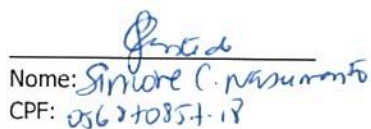 Nome: Simone C. Nascimento
CPF: 056270857-18